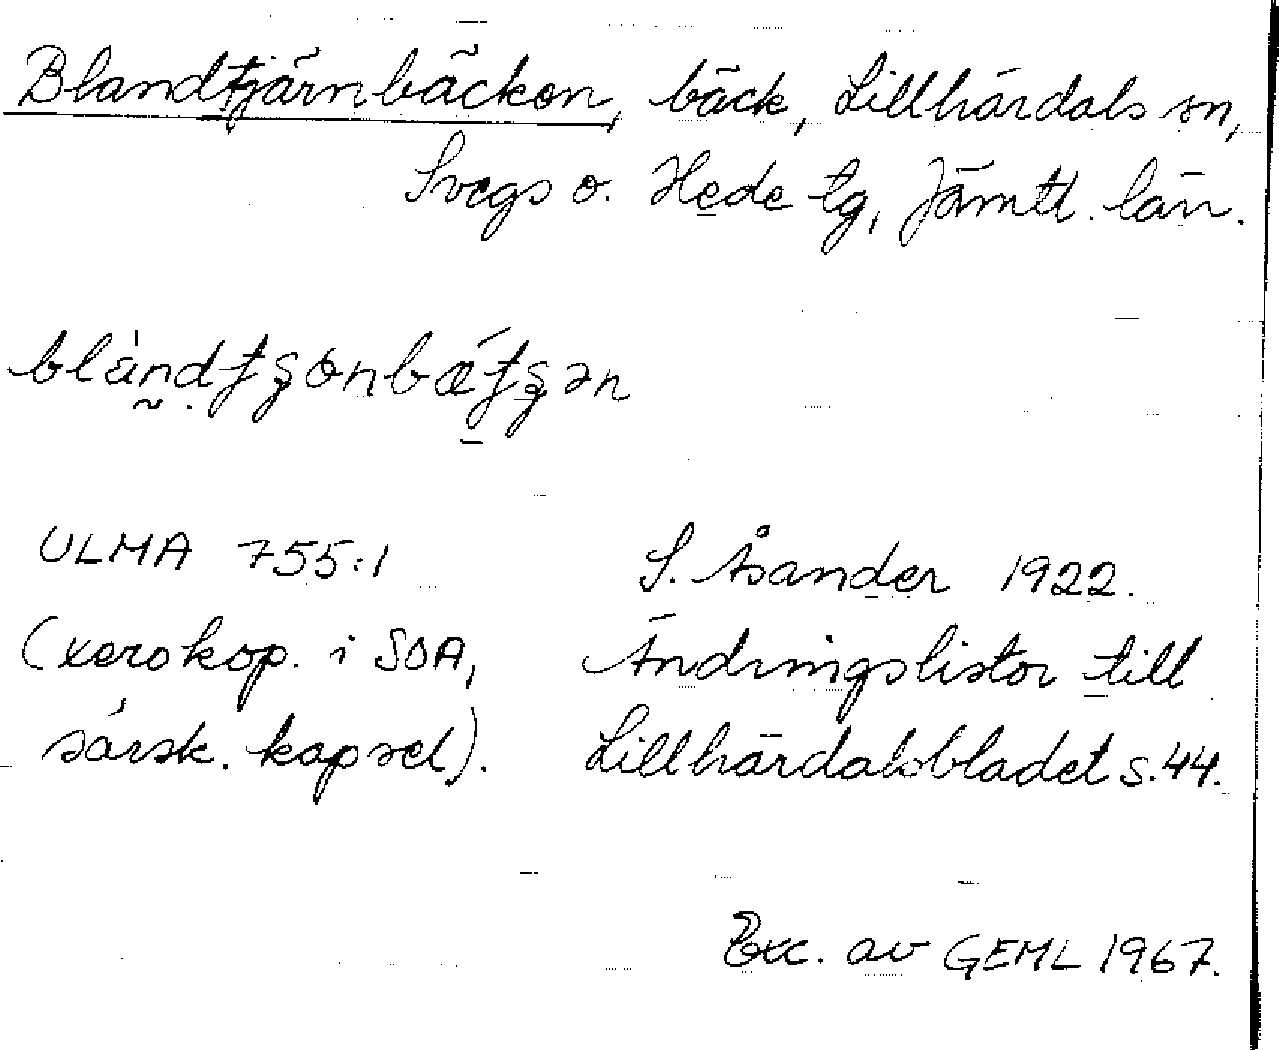 Blandtjärnbäcken, bäck, Lillhärdals sn,
Svegs o. Hede tg, Jämtl. län.
ULMA 755:1
S. Åsander 1922.
(xerokop. i SOA,
Ändringslistor till
särsk. kapsel).
Lillhärdalsbladet s. 44.
Exc. av GEML 1967.